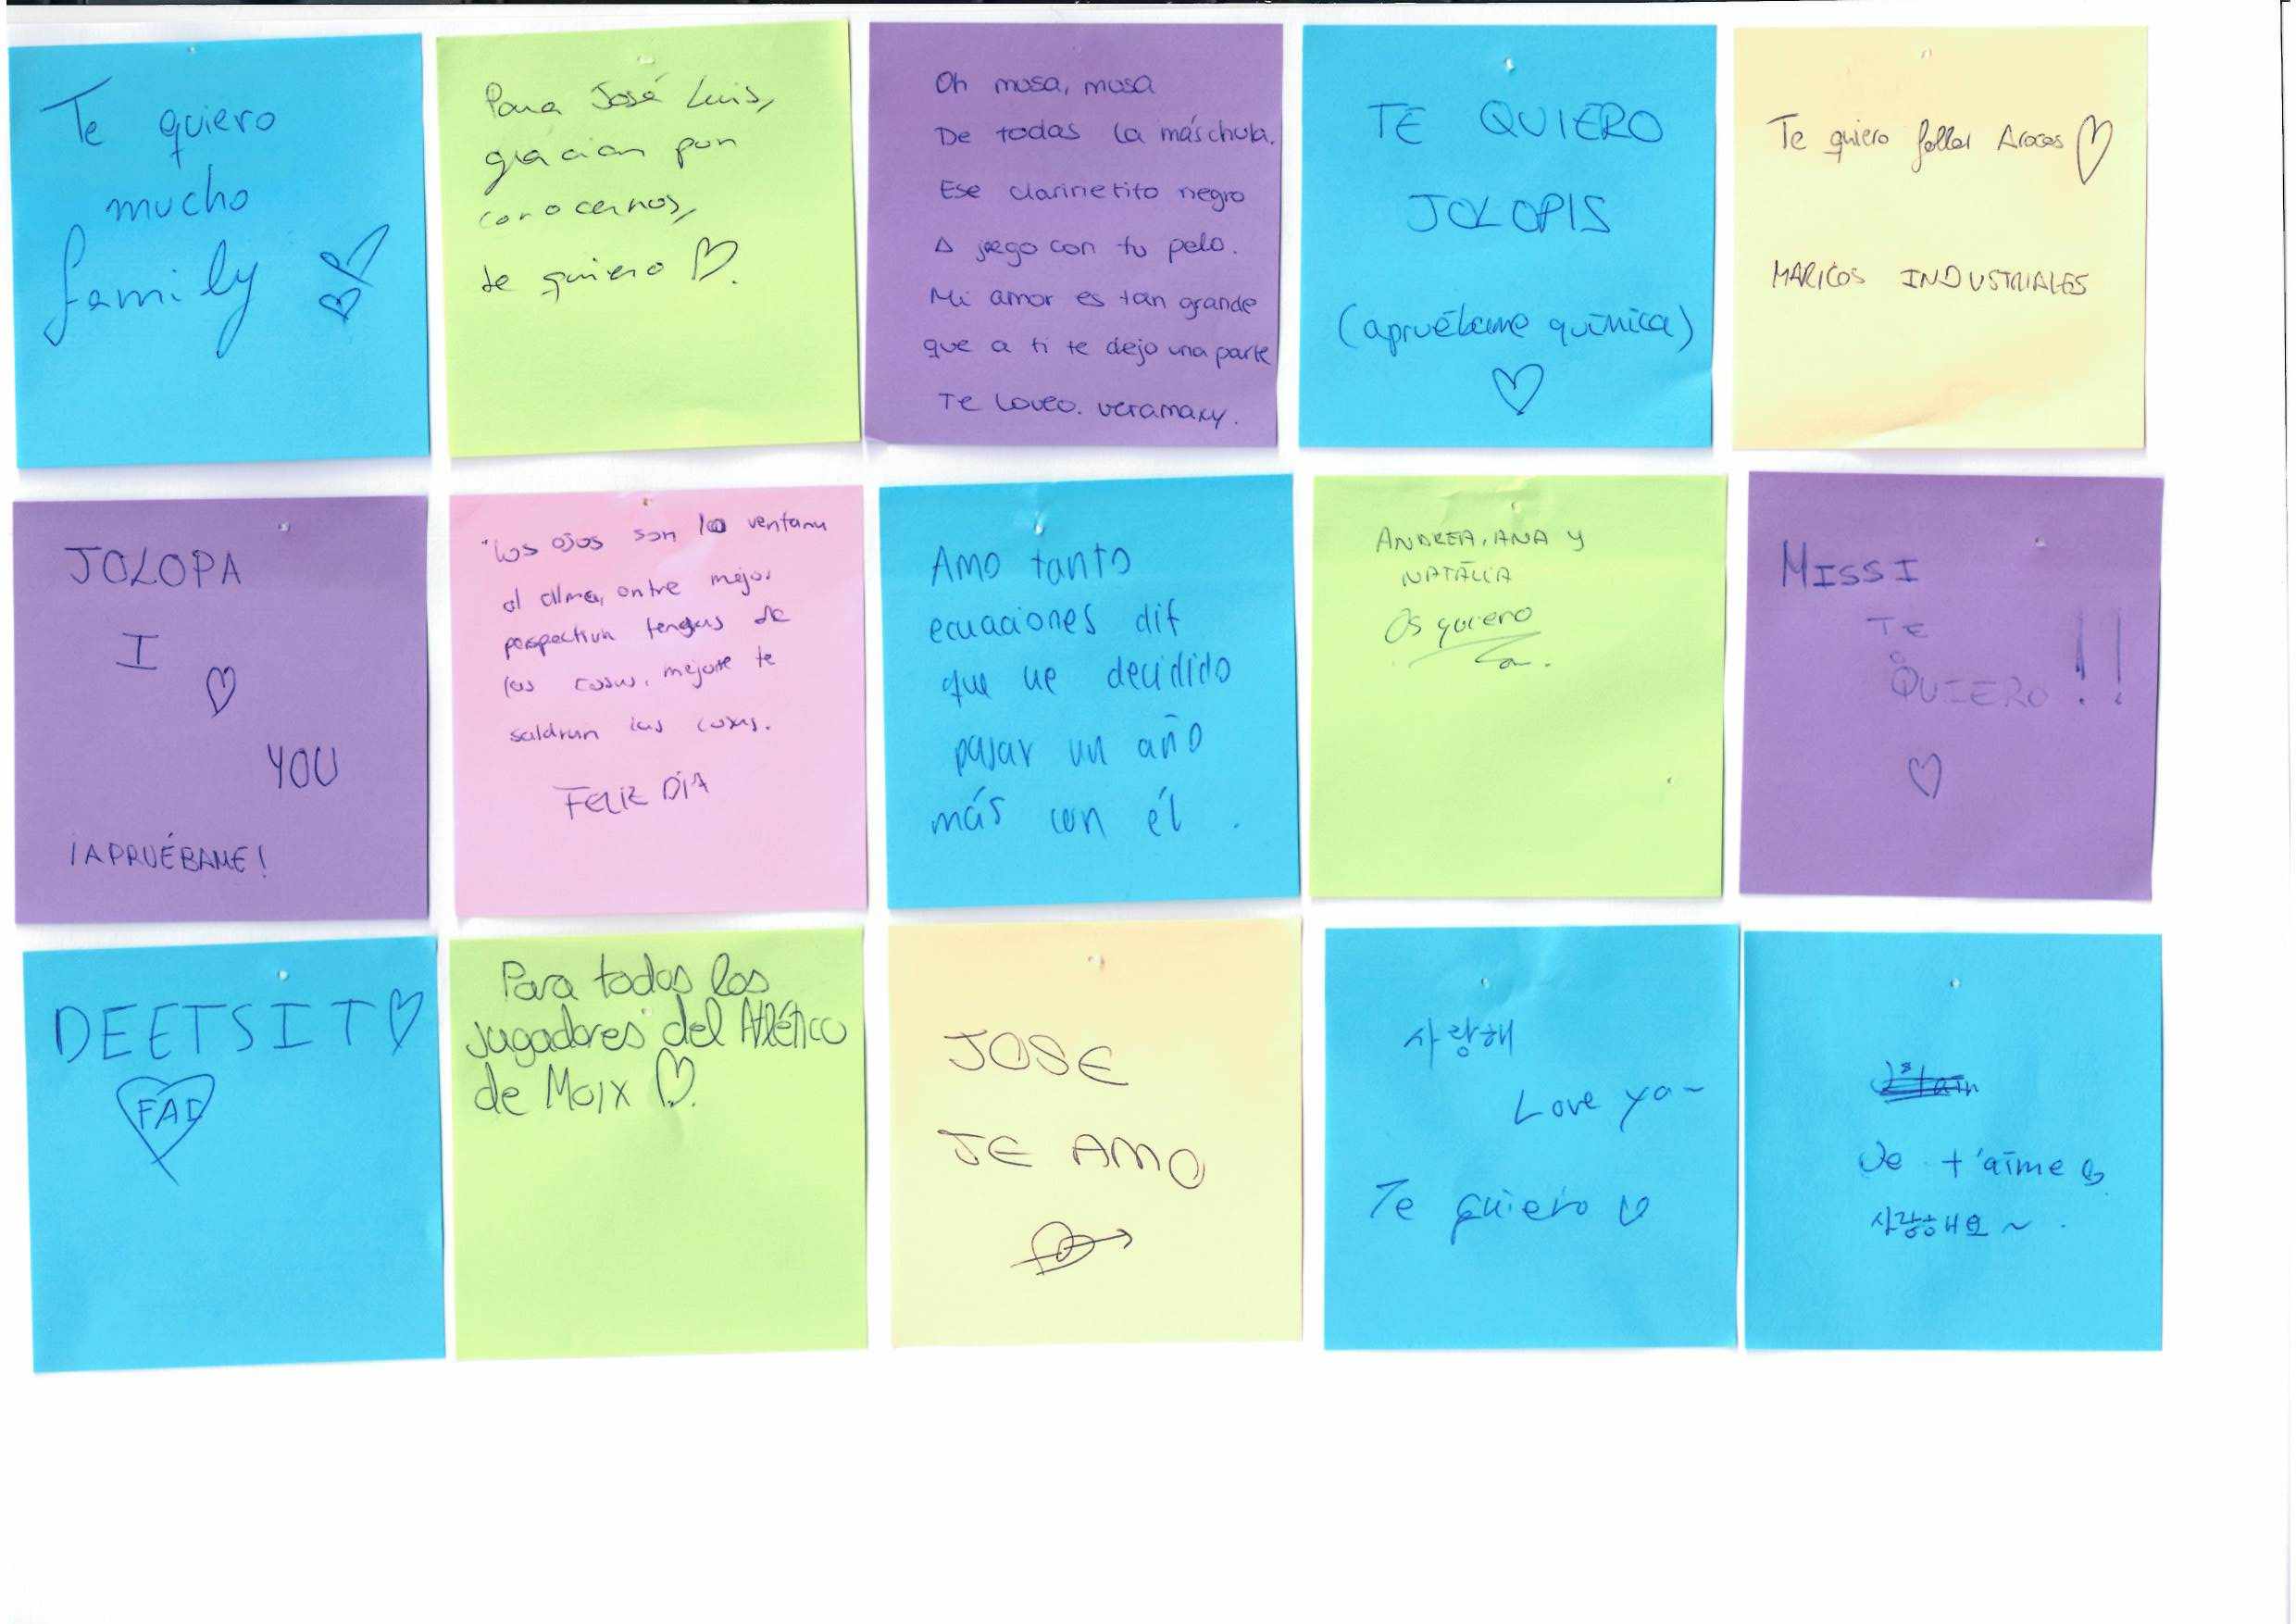 Te quiero
mucho
family
Para José Luis,
gracias por
conocernos,
te quiero
Oh musa, musa
De todas la más chula.
Ese clarinetito negro
A juego con tu pelo.
Mi amor es tan grande
que a ti te dejo una parte
Te Loveo. veramaxy.
TE QUIERO
JOLOPIS
(apruébame química)
Te quiero follar Aroces
MARICOS INDUSTRIALES
JOLOPA
I
YOU
¡APRUÉBAME!
"Los ojos son la ventana
al alma, entre mejor
perspectiva tengas de
las cosas, mejore te
saldran las cosas.
FELIZ DÍA
Amo tanto
ecuaciones dif
que he decidido
pasar un año
más con él.
ANDREA, ANA Y
NATÀLIA
Os quiero
MISSI
TE
QUIERO !!
DEETSIT
FAD
Para todos los
jugadores del Atlético
de Moix
JOSE
JE AMO
사랑해
Love ya~
Te quiero
Je t'aime
사랑해요~.